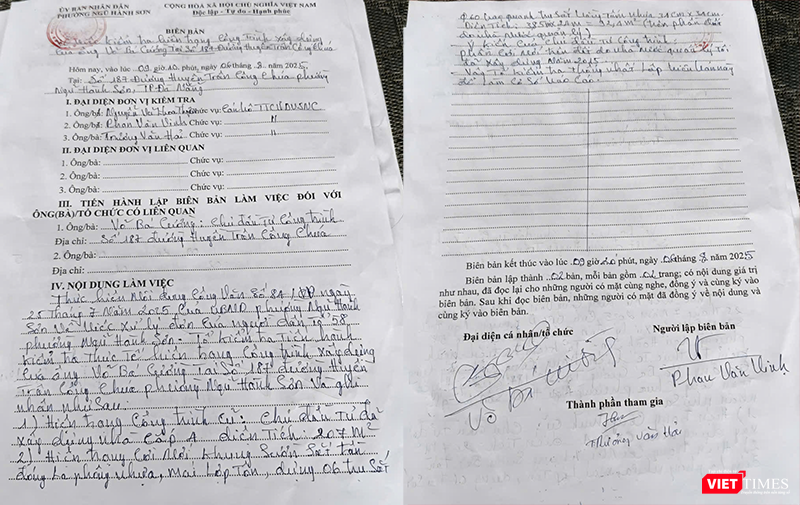 ỦY BAN NHÂN DÂN
PHƯỜNG NGŨ HÀNH SƠN
CỘNG HÒA XÃ HỘI CHỦ NGHĨA VIỆT NAM
Độc lập - Tự do - Hạnh phúc
BIÊN BẢN
kiểm tra hiện trạng công trình xây dựng
của ông Võ Bá Cường Tại Số 187 Đường Huyền Trân Công Chúa
Hôm nay, vào lúc 09 giờ 00 phút, ngày 06 tháng 8 năm 2025
Tại: Số 187 Đường Huyền Trân Công Chúa phường
Ngũ Hành Sơn, TP. Đà Nẵng
I. ĐẠI DIỆN ĐƠN VỊ KIỂM TRA
1. Ông/bà: Nguyễn Võ Khoa Chức vụ: Cán bộ
2. Ông/bà: Phan Văn Vinh Chức vụ: "
3. Ông/bà: Trương Văn Hải Chức vụ: "
II. ĐẠI DIỆN ĐƠN VỊ LIÊN QUAN
1. Ông/bà: Chức vụ:
2. Ông/bà: Chức vụ:
3. Ông/bà: Chức vụ:
III. TIẾN HÀNH LẬP BIÊN BẢN LÀM VIỆC ĐỐI VỚI
ÔNG(BÀ)/TỔ CHỨC CÓ LIÊN QUAN
1. Ông/bà: Võ Bá Cường: Chủ đầu tư công trình
Địa chỉ: Số 187 đường Huyền Trân Công Chúa
2. Ông/bà:
Địa chỉ:
IV. NỘI DUNG LÀM VIỆC
Thực hiện Nội dung Công Văn Số 84 ngày
25 tháng 7 Năm 2025 Của UBND phường Ngũ Hành
Sơn Về Việc Xử lý đơn Của người dân tổ 58
phường Ngũ Hành Sơn. Tổ kiểm tra Tiến hành
kiểm tra Thực Tế hiện trạng Công Trình xây dựng
của ông Võ Bá Cường Tại Số 187 đường Huyền
Trân Công Chúa phường Ngũ Hành Sơn Và ghi
nhận như sau:
1) Hiện trạng Công trình Cũ: Chủ đầu Tư đã
xây dựng nhà Cấp 4 diện Tích: 207 m²
2) Hiện trạng Cơi Nới khung Sườn Sắt tấn
đóng la phông nhựa, mái lợp Tôn, dùng 06 trụ sắt
Ø 60
Diện tích:
do nhà nước quản lý)
- Ý kiến Của Chủ đầu Tư Công Trình:
Phần Cơi Nới đất do Nhà Nước quản lý tôi
đã xây dựng Năm 2015
- Và Tổ kiểm tra Thống Nhất Lập biên bản này
để làm Cơ Sở báo Cáo.
Biên bản kết thúc vào lúc 09 giờ 20 phút, ngày 06 tháng 8 năm 2025
Biên bản lập thành 02 bản, mỗi bản gồm 02 trang; có nội dung giá trị
như nhau, đã đọc lại cho những người có mặt cùng nghe, đồng ý và cùng ký vào
biên bản. Sau khi đọc biên bản, những người có mặt đồng ý về nội dung và
cùng ký vào biên bản.
Đại diện cá nhân/tổ chức
Người lập biên bản
Võ Bá Cường
Phan Văn Vinh
Thành phần tham gia
Trương Văn Hải
VIETTIMES